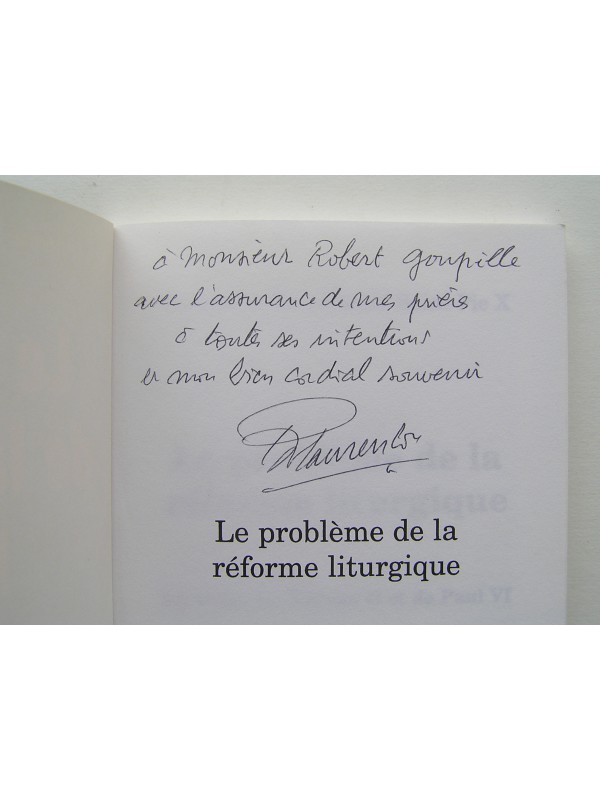 à Monsieur Robert Goupille
avec l'assurance de mes prières
à toutes ses intentions
et mon bien cordial souvenir
Le problème de la
réforme liturgique